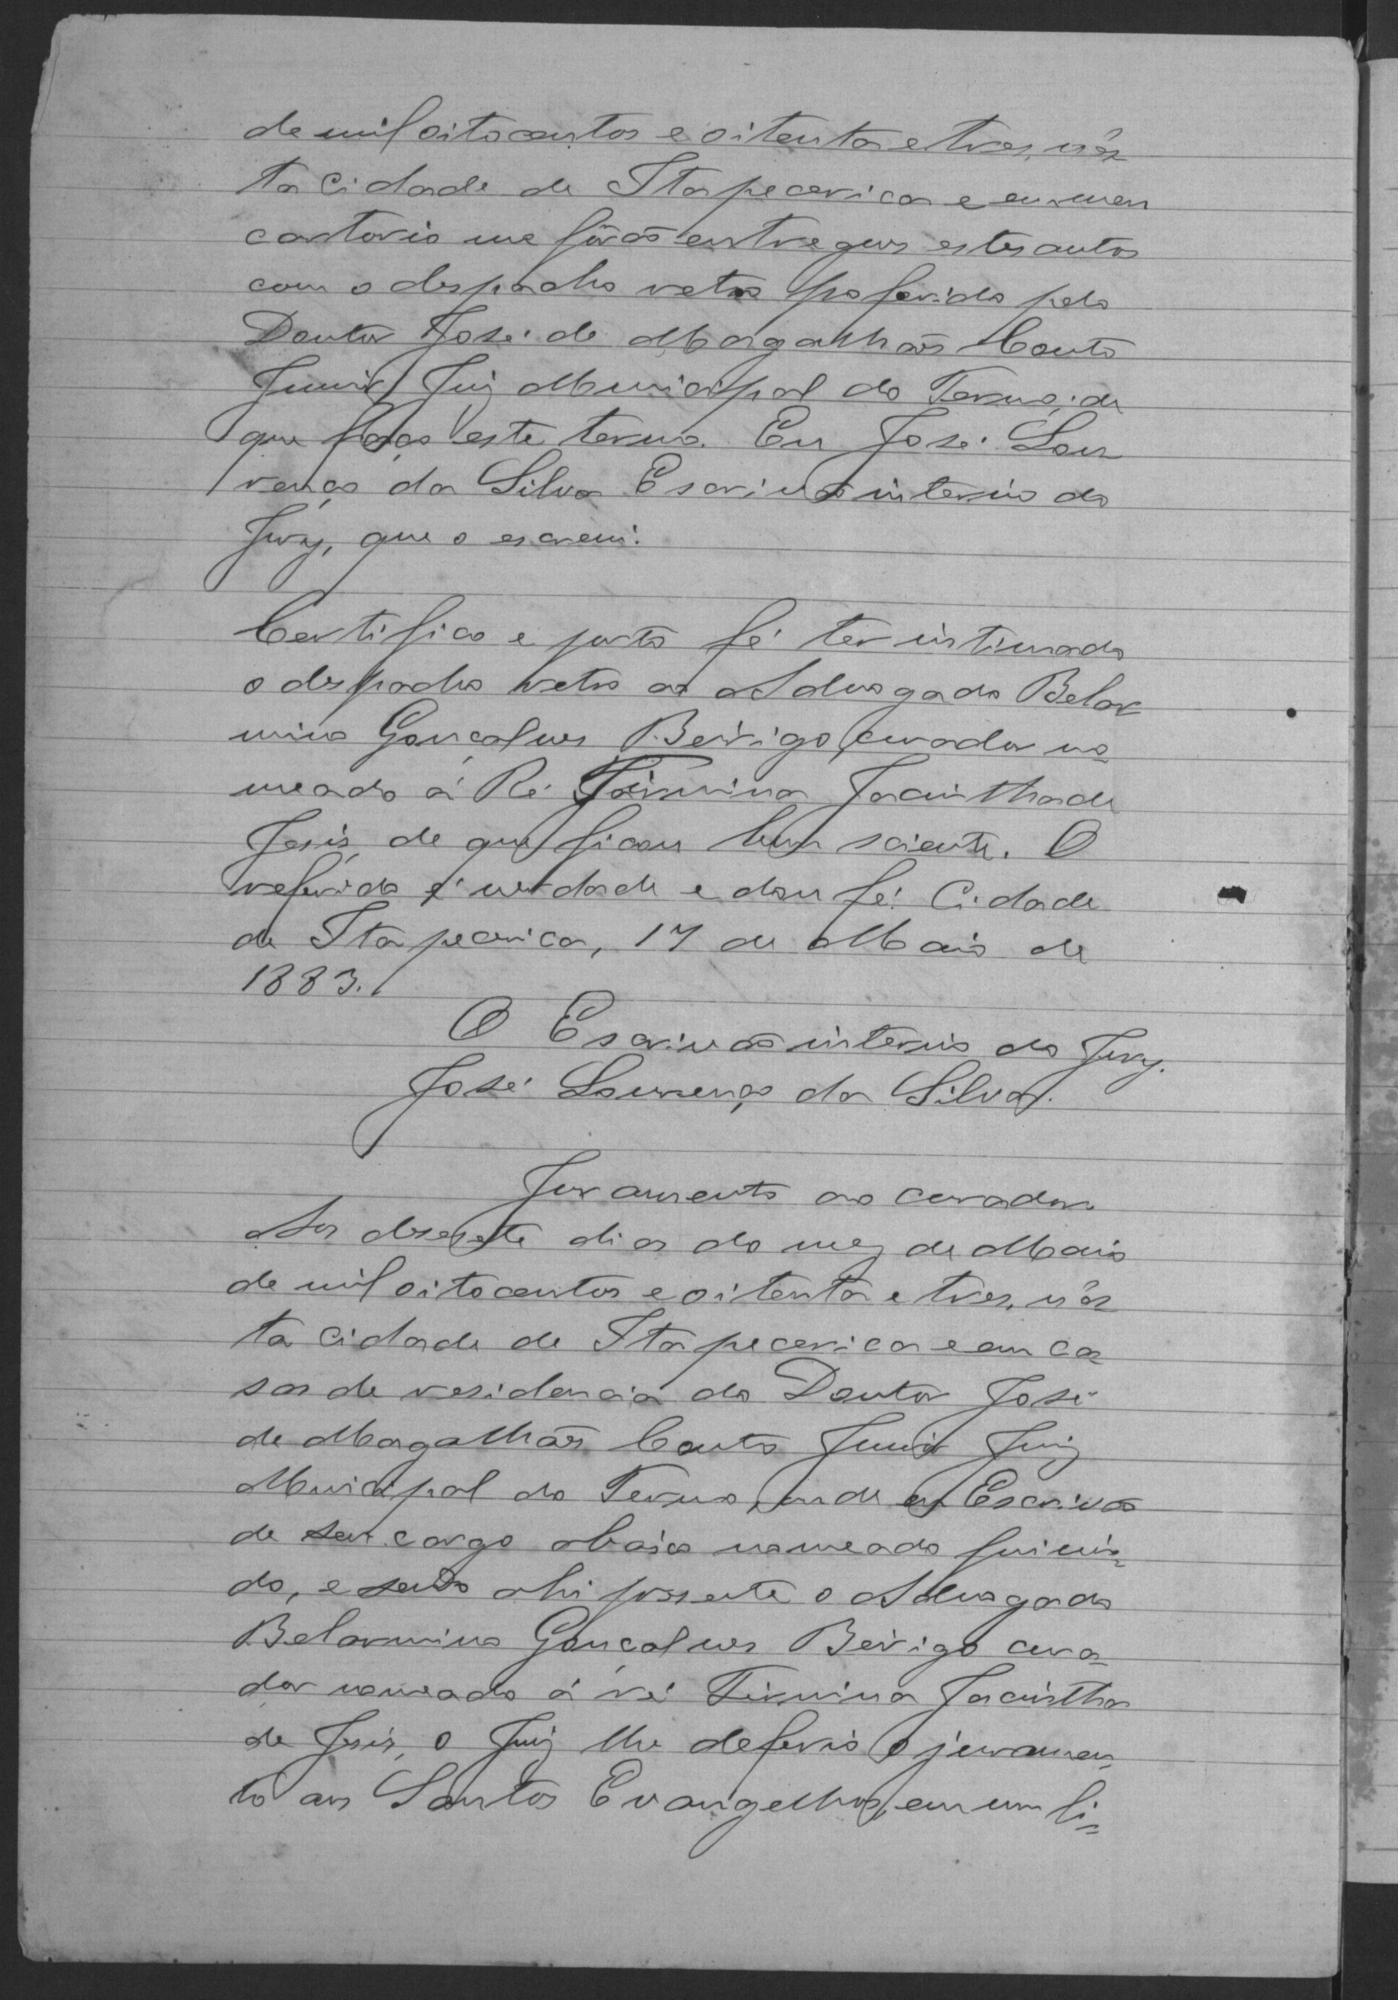 de mil oitocentos e oitenta e tres, nés-
ta cidade de Itapecerica e em meu
cartorio me fôrão entregues estes autos
com o despacho retro proferido pelo
Doutor José de Magalhães Couto
Junior Juiz Municipal do Termo; do
que faço este termo. Eu José Lou-
renço da Silva Escrivão interino do
Jury, que o escrevi.
Certifico e porto fé ter intimado
o despacho retro ao Advogado Belar-
mino Gonçalves Beirigo, curador no-
meado á Ré Firmina Jacintha de
Jesus, de que ficou bem sciente. O
referido é verdade e dou fé. Cidade
de Itapecerica, 17 de Maio de
1883.
O Escrivão interino do Jury.
José Lourenço da Silva.
Juramento ao curador.
Aos desesete dias do mez de Maio
de mil oitocentos e oitenta e tres, nés-
ta cidade de Itapecerica e em ca-
sas de residencia do Doutor José
de Magalhães Couto Junior Juiz
Municipal do Termo, onde eu Escrivão
de seu cargo abaixo nomeado fui vin-
do, e sendo ahi presente o Advogado
Belarmino Gonçalves Beirigo cura-
dor nomeado á ré Firmina Jacintha
de Jesus, o Juiz lhe deferio o juramen-
to aos Santos Evangelhos, em um li-